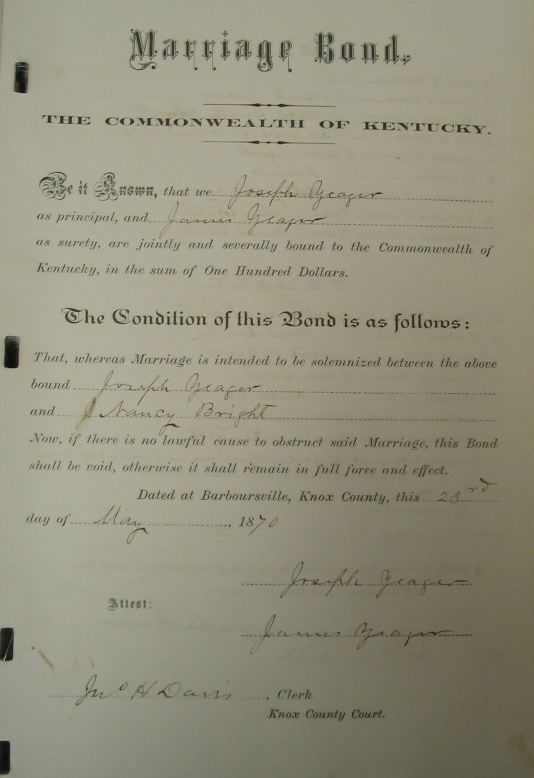 Marriage Bond.
THE COMMONWEALTH OF KENTUCKY.
Be it Known, that we Joseph Yeager
as principal, and James Yeager
as surety, are jointly and severally bound to the Commonwealth of
Kentucky, in the sum of One Hundred Dollars.
The Condition of this Bond is as follows:
That, whereas Marriage is intended to be solemnized between the above
bound Joseph Yeager
and Nancy Bright
Now, if there is no lawful cause to obstruct said Marriage, this Bond
shall be void, otherwise it shall remain in full force and effect.
Dated at Barboursville, Knox County, this 23rd
day of May, 1870
Joseph Yeager
Attest:
James Yeager
Jno H Davis, Clerk
Knox County Court.